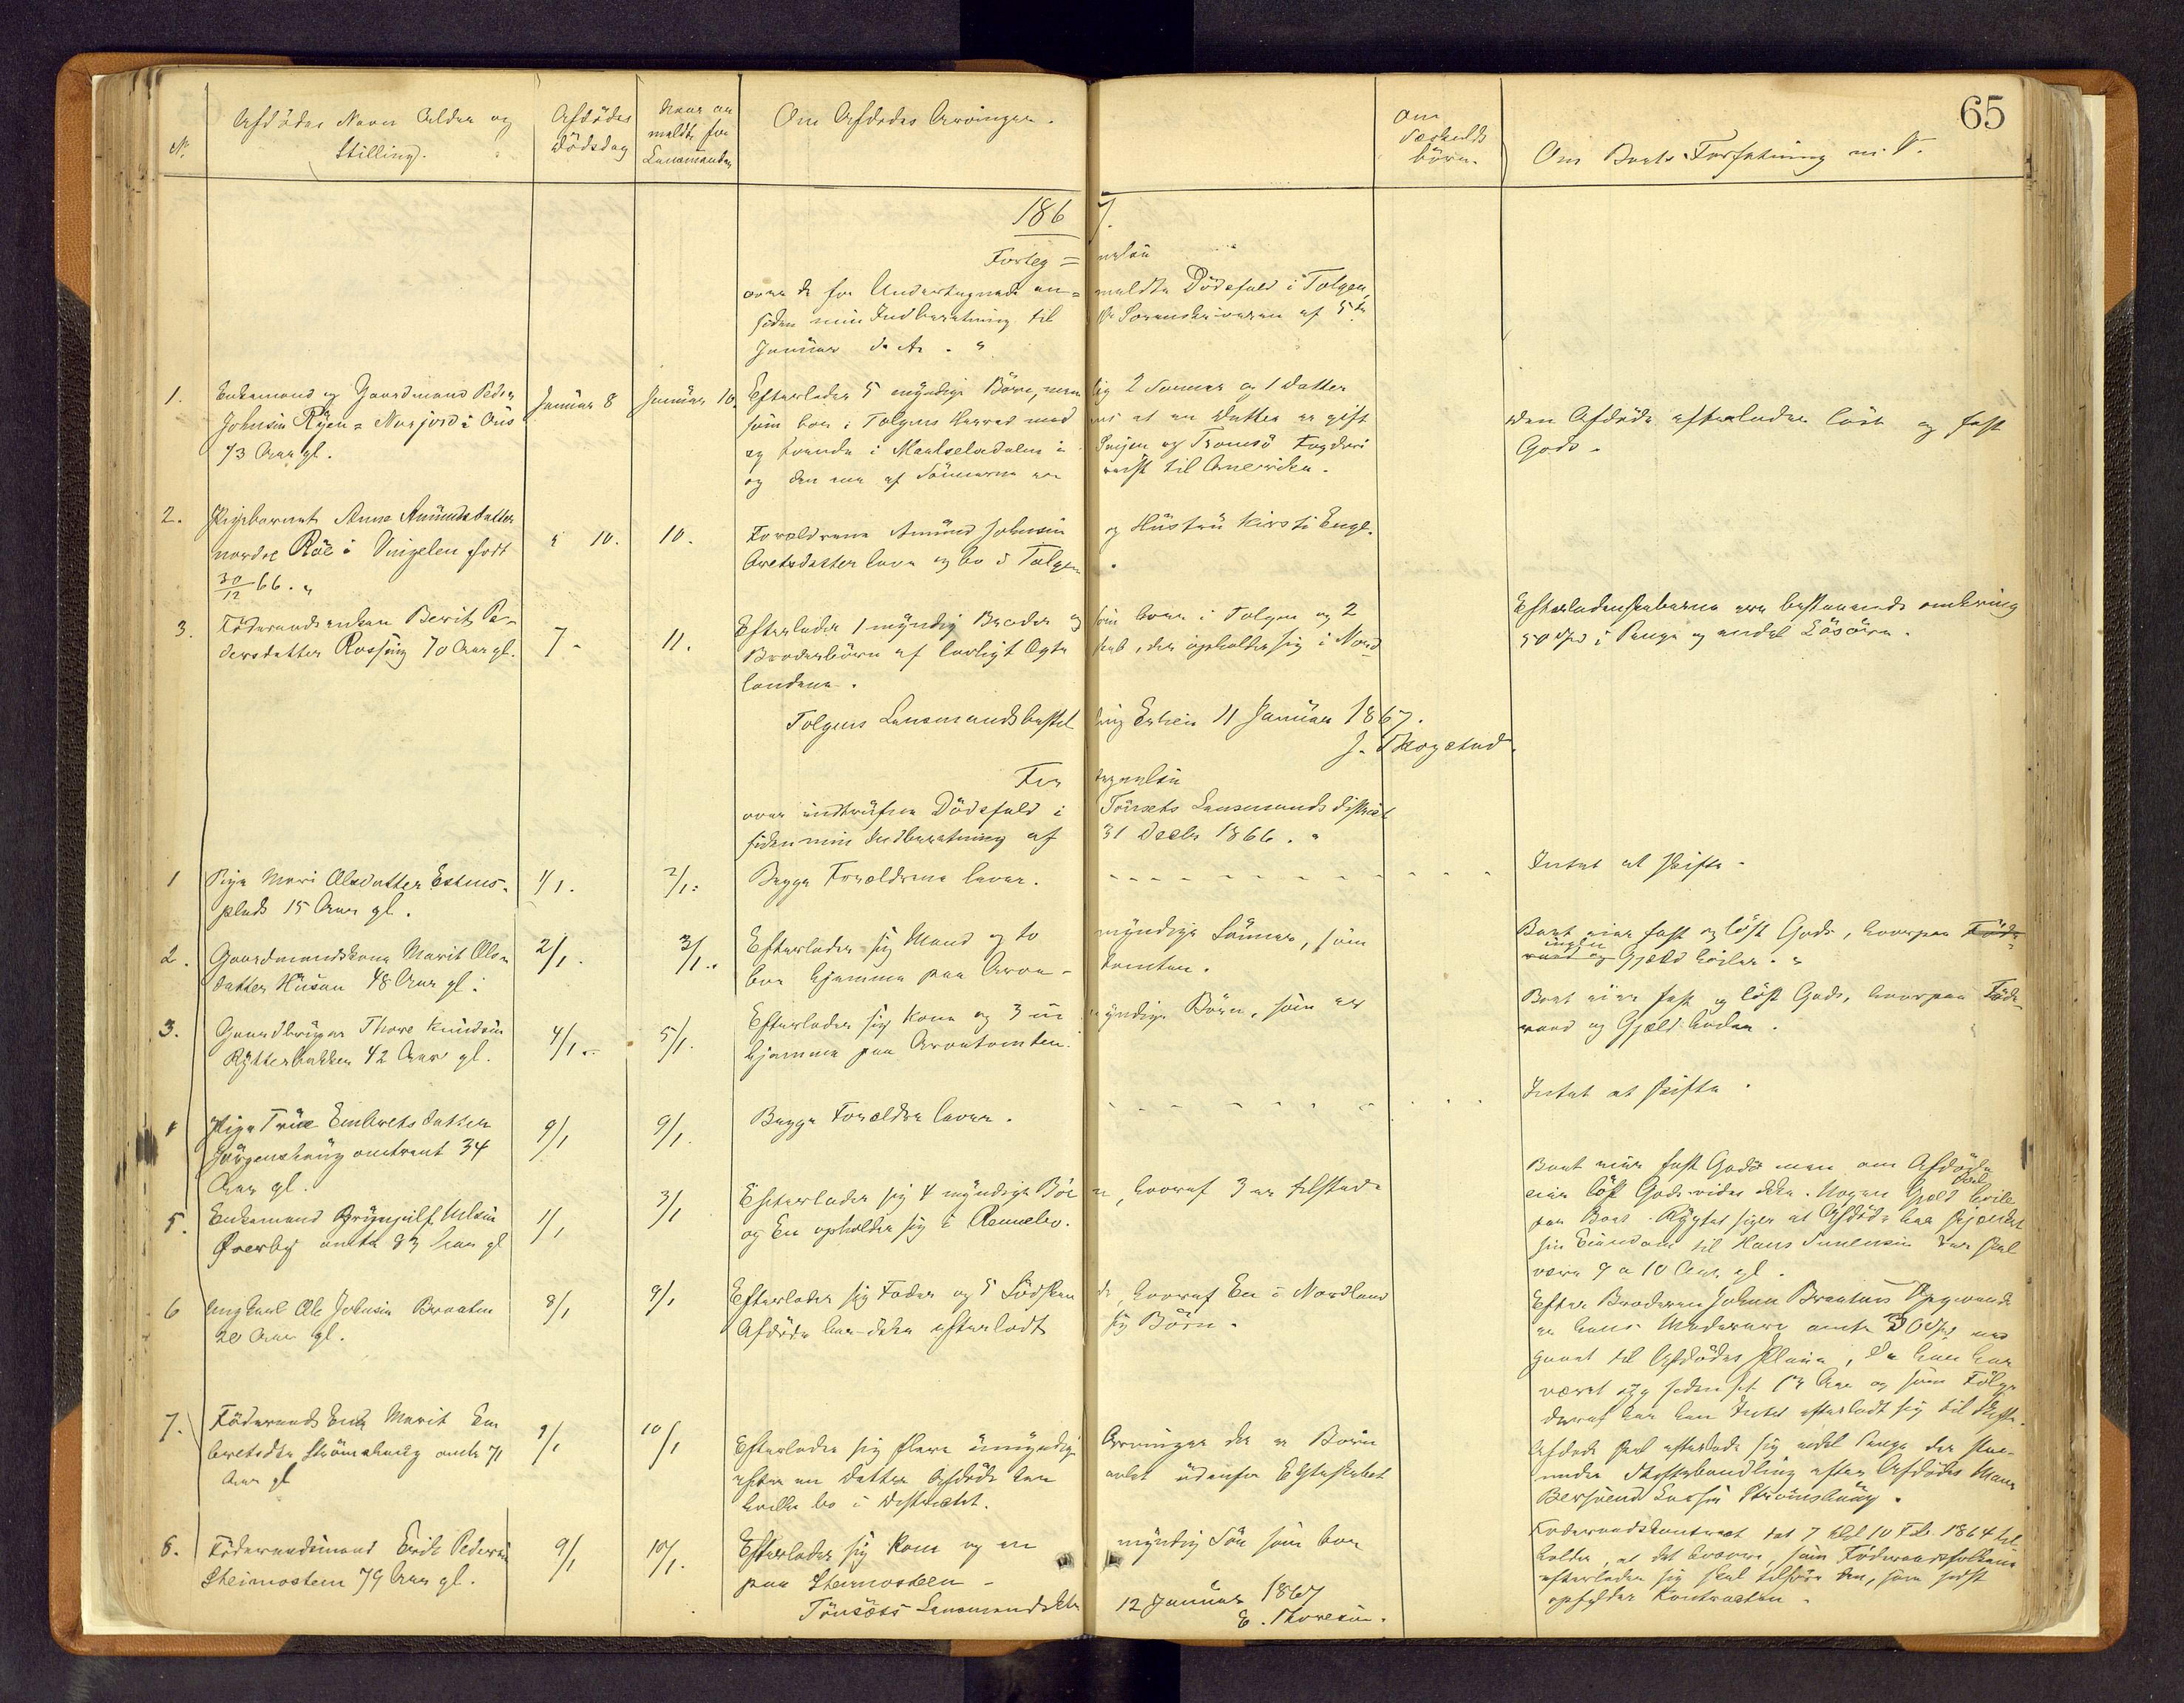 65
No
Afdödes Navn Alder og
Stilling.
Afdödes
Dödsdag
Naar an
meldt for
Lensmanden
Om Afdødes Arvinger.
Om
Særkulds
börn.
Om Boets Forfatning m. V.
1867.
Forteg=nelse
over de for Undertegnede an=meldte Dödsfald i Tolgen,
siden min Indberetning til Hr Sorenskriveren af 5te
Januar d. A.
1. Enkemand og Gaardmand Peder
Johnsen Ryen=Nurjord i Øus
73 Aar gl.
Januar 8
Januar 10.
Efterlader 5 myndige Börn, nemlig 2 Sønner og 1 Datter
som boer i Tolgens Herred med at en Datter er gift
og boende i Maalselvdalen i Senjen og Tromsö Fogderi
og den ene af Sönnerne er reist til Amerika.
Den Afdöde efterlader löst og fast
Gods.
2. Pigebarnet Anne Amundsdatter
nordre Röe i Vingelen født
30/12 66.
" 10.
10.
Forældrene Amund Johnsen og Hustru Kirsti Enge-
bretsdatter leve og bo i Tolgen.
3. Föderaadsenken Berit Pe-
dersdatter Rossing 70 Aar gl.
7 -
11.
Efterlader 1 myndig Broder som boer i Tolgen og 2
Broderbörn af lovligt Ægteskab, der opholder sig i Nord
landene.
Efterladenskaberne ere bestaaende omkring
50 Spd i Penge og endel Lösöre.
Tolgens Lensmandsbestilling Erlien 11 Januar 1867.
J. Skogstad.
Fortegnelse
over indtrufne Dödsfald i Tönsets Lensmandsdistrict
siden min Indberetning af 31 Decbr 1866.
1 Pige Mari Olsdatter Estens-
plads 15 Aar gl.
1/1.
2/1.
Begge Forældrene lever.
Intet at skifte.
2. Gaardmandskone Marit Ols-
datter Husan 48 Aar gl.
2/1.
3/1.
Efterlader sig Mand og to myndige Sönner, som
boe hjemme paa Arve-tomten.
Boet eier fast og löst Gods, hvorpaa Föde-
raad og ingen Gjæld hviler.
3. Gaardbruger Thore Knudsen
Rytterbakken 42 Aar gl.
4/1.
5/1.
Efterlader sig Kone og 3 umyndige Börn, som er
hjemme paa Arvetomten.
Boet eier fast og löst Gods, hvorpaa Föde-
raad og Gjæld hviler.
4 Pige Trüe Embretsdatter
Jörgenshaug omtrent 34
Aar gl.
9/1
9/1.
Begge Forældre lever.
Intet at skifte.
5. Enkemand Brynjulf Nilsen
Øverby omtr 83 Aar gl
1/1
3/1
Efterlader sig 4 myndige Börn, hvoraf 3 er tilstede
og En opholder sig i Rennebo.
Boet eier fast Gods men om Afdöde
eier löst Gods vides ikke. Nogen Gjæld hviler
paa Boet. Rygtet siger at Afdöde har skjænket
sin Eiendom til Hans Simensen der skal
være 9 a 10 Aar gl.
6 Ungkarl Ole Johnsen Braaten
20 Aar gl.
8/1
9/1
Efterlader sig Fader og 5 Södskende, hvoraf En i Nordland
Afdöde har ikke efterladt sig Börn.
Efter Broderen Johan Braatens Opgivende
er hans Mødrearv omtr 30 Spd med
gaaet til Afdödes Pleie, da han har
været syg siden sit 13 Aar og som Fölge
deraf har han Intet efterladt sig til Skifte.
7. Föderaads Enke Marit Em
bretsdtr Strömshaug omtr 71
Aar gl
9/1
10/1
Efterlader sig flere umyndige Arvinger der er Börn
efter en Datter Afdöde har avlet udenfor Egteskabet
hvilke bo i Districtet.
Afdøde skal efterlade sig endel Penge der staae
under Skiftebehandling efter Afdödes Mand
Bersvend Larsen Strömshaug.
8. Föderaadsmand Erik Pedersen
Steimosteen 79 Aar gl.
9/1
10/1.
Efterlader sig Kone og en myndig Sön som boer
paa Steimosteen.
Foderaadskontract dat 7 tgl 10 Feb. 1864 inde-
holder, at det hvorom, som Föderaadsfolkene
efterlader sig skal tilhöre den, som sidst
opfylder Kontracten.
Tönsæts Lensmandsktr 12 Januar 1867
E. Thoresen.